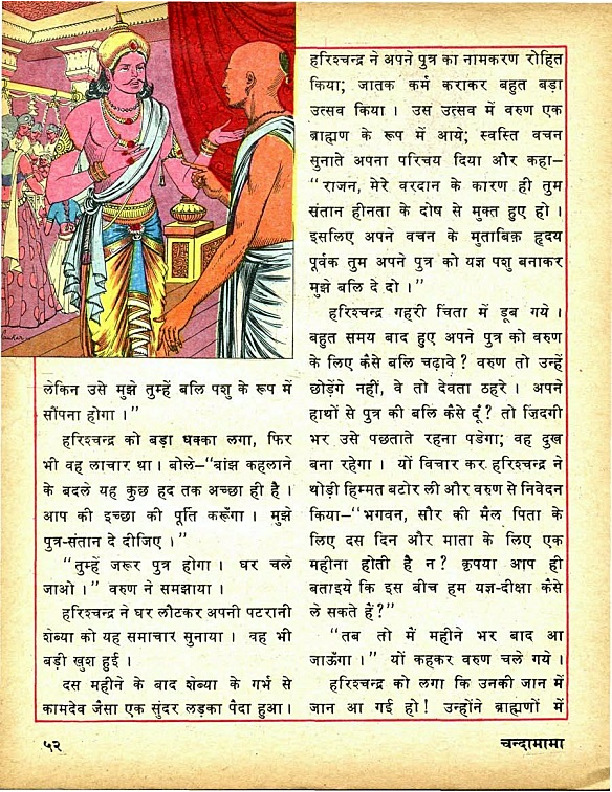 लेकिन उसे मुझे तुम्हें बलि पशु के रूप में
सौंपना होगा ।”
हरिश्चन्द्र को बड़ा धक्का लगा, फिर
भी वह लाचार था । बोले—“बांझ कहलाने
के बदले यह कुछ हद तक अच्छा ही है ।
आप की इच्छा की पूर्ति करूँगा । मुझे
पुत्र-संतान दे दीजिए ।”
“तुम्हें जरूर पुत्र होगा । घर चले
जाओ ।” वरुण ने समझाया ।
हरिश्चन्द्र ने घर लौटकर अपनी पटरानी
शेब्या को यह समाचार सुनाया । वह भी
बड़ी खुश हुई ।
दस महीने के बाद शेब्या के गर्भ से
कामदेव जैसा एक सुंदर लड़का पैदा हुआ ।
हरिश्चन्द्र ने अपने पुत्र का नामकरण रोहित
किया; जातक कर्म कराकर बहुत बड़ा
उत्सव किया । उस उत्सव में वरुण एक
ब्राह्मण के रूप में आये; स्वस्ति वचन
सुनाते अपना परिचय दिया और कहा—
“राजन, मेरे वरदान के कारण ही तुम
संतान हीनता के दोष से मुक्त हुए हो ।
इसलिए अपने वचन के मुताबिक़ हृदय
पूर्वक तुम अपने पुत्र को यज्ञ पशु बनाकर
मुझे बलि दे दो ।”
हरिश्चन्द्र गहरी चिंता में डूब गये ।
बहुत समय बाद हुए अपने पुत्र को वरुण
के लिए कैसे बलि चढ़ावे ? वरुण तो उन्हें
छोड़ेंगे नहीं, वे तो देवता ठहरे । अपने
हाथों से पुत्र की बलि कैसे दूँ ? तो ज़िदगी
भर उसे पछताते रहना पडेगा; वह दुख
बना रहेगा । यों विचार कर हरिश्चन्द्र ने
थोड़ी हिम्मत बटोर ली और वरुण से निवेदन
किया—“भगवन, सौर की मैल पिता के
लिए दस दिन और माता के लिए एक
महीना होती है न ? कृपया आप ही
बताइये कि इस बीच हम यज्ञ-दीक्षा कैसे
ले सकते हैं ?”
“तब तो में महीने भर बाद आ
जाऊँगा ।” यों कहकर वरुण चले गये ।
हरिश्चन्द्र को लगा कि उनकी जान में
जान आ गई हो ! उन्होंने ब्राह्मणों में
५२
चन्दामामा